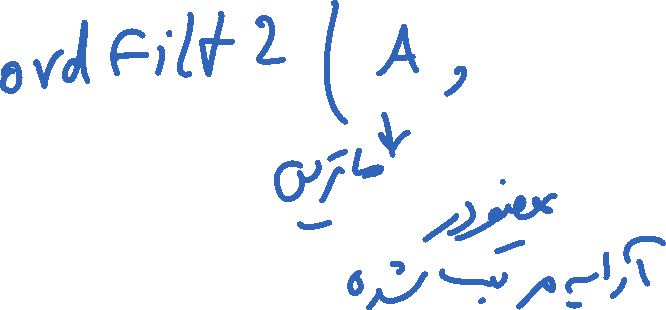 ordfilt2 ( A ,
ماتریس
عضو در
آرایه مرتب شده